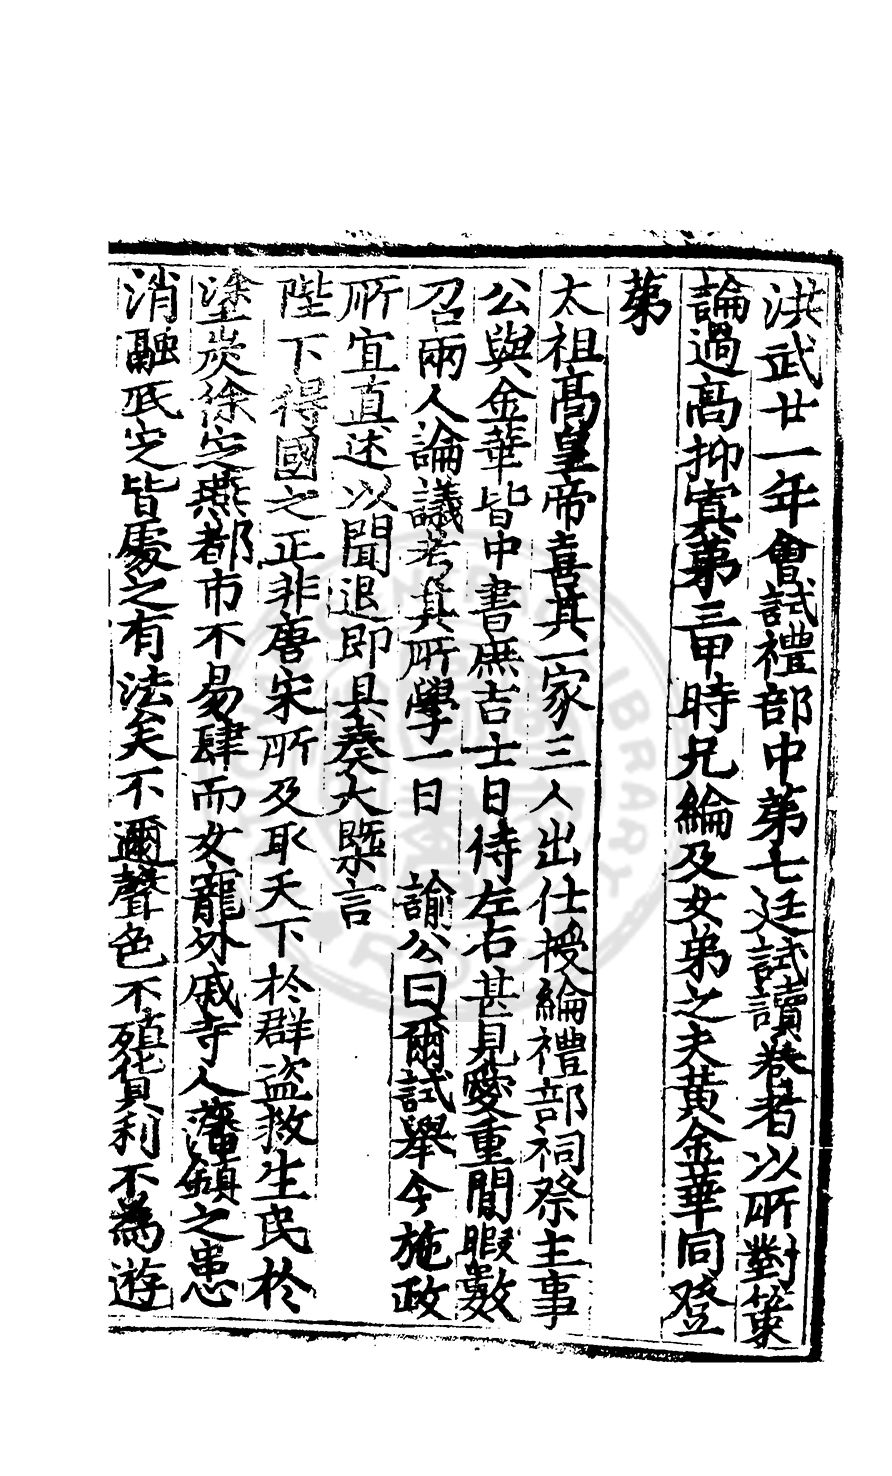 洪武廿一年會試禮部中第七廷試讀卷者以所對策
論過高抑寘第三甲時兄綸及女弟之夫黃金華同登
第
太祖高皇帝喜其一家三人出仕授綸禮部祠祭主事
公與金華皆中書庶吉士日侍左右甚見愛重閒暇數
召兩人論議考其所學一日 諭公曰爾試舉今施政
所宜直述以聞退即具奏大槩言
陛下得國之正非唐宋所及取天下於群盜救生民於
塗炭徐定燕都市不易肆而女寵外戚寺人藩鎮之患
消融底定皆處之有法矣不邇聲色不殖貨利不為遊